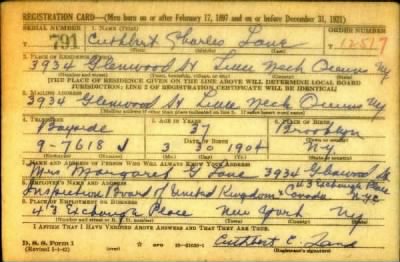 REGISTRATION CARD—(Men born on or after February 17, 1897 and on or before December 31, 1921)
SERIAL NUMBER 1. NAME (Print) ORDER NUMBER
791 Cuthbert Charles Lane 12517
2. PLACE OF RESIDENCE (Print)
3934 Glenwood St Little Neck Queens NY
(Number and street) (Town, township, village, or city) (County) (State)
[THE PLACE OF RESIDENCE GIVEN ON THE LINE ABOVE WILL DETERMINE LOCAL BOARD
JURISDICTION; LINE 2 OF REGISTRATION CERTIFICATE WILL BE IDENTICAL]
3. MAILING ADDRESS
3934 Glenwood St Little Neck Queens NY
[Mailing address if other than place indicated on line 2. If same insert word same]
4. TELEPHONE 5. AGE IN YEARS 6. PLACE OF BIRTH
Bayside 37 Brooklyn
DATE OF BIRTH
9-7618 J 3 30 1904 N-Y
7. NAME AND ADDRESS OF PERSON WHO WILL ALWAYS KNOW YOUR ADDRESS
Mrs Margaret G Lane 3934 Glenwood St
8. EMPLOYER'S NAME AND ADDRESS 43 Exchange Place
Inspection Board of United Kingdom & Canada NYC
9. PLACE OF EMPLOYMENT OR BUSINESS
43 Exchange Place New York NY
(Number and street or R. F. D. number) (Town) (County) (State)
I AFFIRM THAT I HAVE VERIFIED ABOVE ANSWERS AND THAT THEY ARE TRUE.
D. S. S. Form 1
(Revised 1-1-42) (over) Cuthbert C. Lane